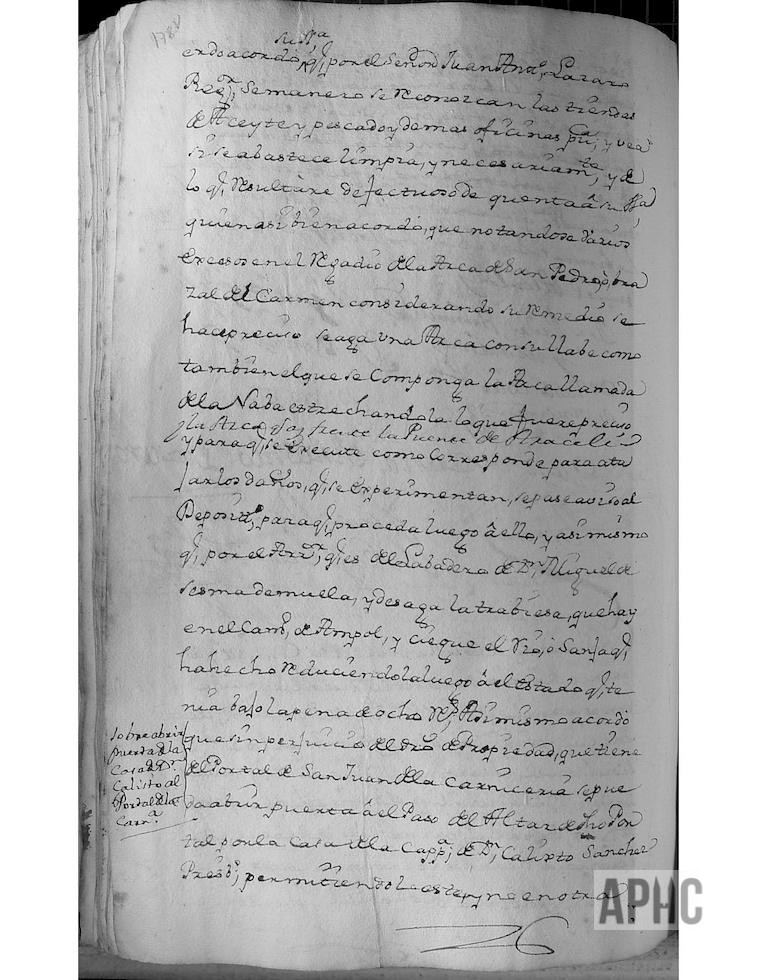 1784
su Sª
erdo acordó, q̃ por el Señor Juan Antº Lazaro
Regʳ, Semanero se reconozcan las tiendas
de Aceyte y pescado y demas oficinas pᵃˢ, y vea
si se abastece limpia, y necesariamᵗᵉ, y de
lo q̃ resultare defectuoso de quenta â su Sª
quien asi bien acordó, que notandose varios
excesos en el regadio de la Arca de San Pedro, ô bra
zal del Carmen considerando su remedio se
hace preciso se aga una Arca con su llabe como
tambien el que se Componga la Arca llamada
de la Naba estrechandola lo que fuere preciso
y la Arca frente la Puente de
y para q̃ se execute como corresponde para ata
jar los daños, q̃ se experimentan, se pase aviso al
Deposᵗº, para q̃ proceda luego â ello, y asi mismo
q̃ por el Arrᵒʳ, q̃ es del Labadero de Dⁿ, Miguel de
Sesma demuela, y desaga la trabiesa, que hay
en el Camº, de Ampol, y ciegue el Rio, ô Sanja q̃
ha hecho reduciendola luego â el estado q̃ te
nia bajo la pena de ocho Rˢ; Asi mismo acordó
que sin perjuicio del dro de Propiedad, que tiene
del Portal de San Juan de la Carniceria se pue
da abrir puerta â el Paso del Altar de dho Por
tal por la Casa de la Cappª, de Dⁿ, Calixto Sanchez
Presbº, permitiendole este, y no en otra
sobre abrir
puerta de la
Casa de Dⁿ
Calisto al
Portal de la
Carnª
APHC